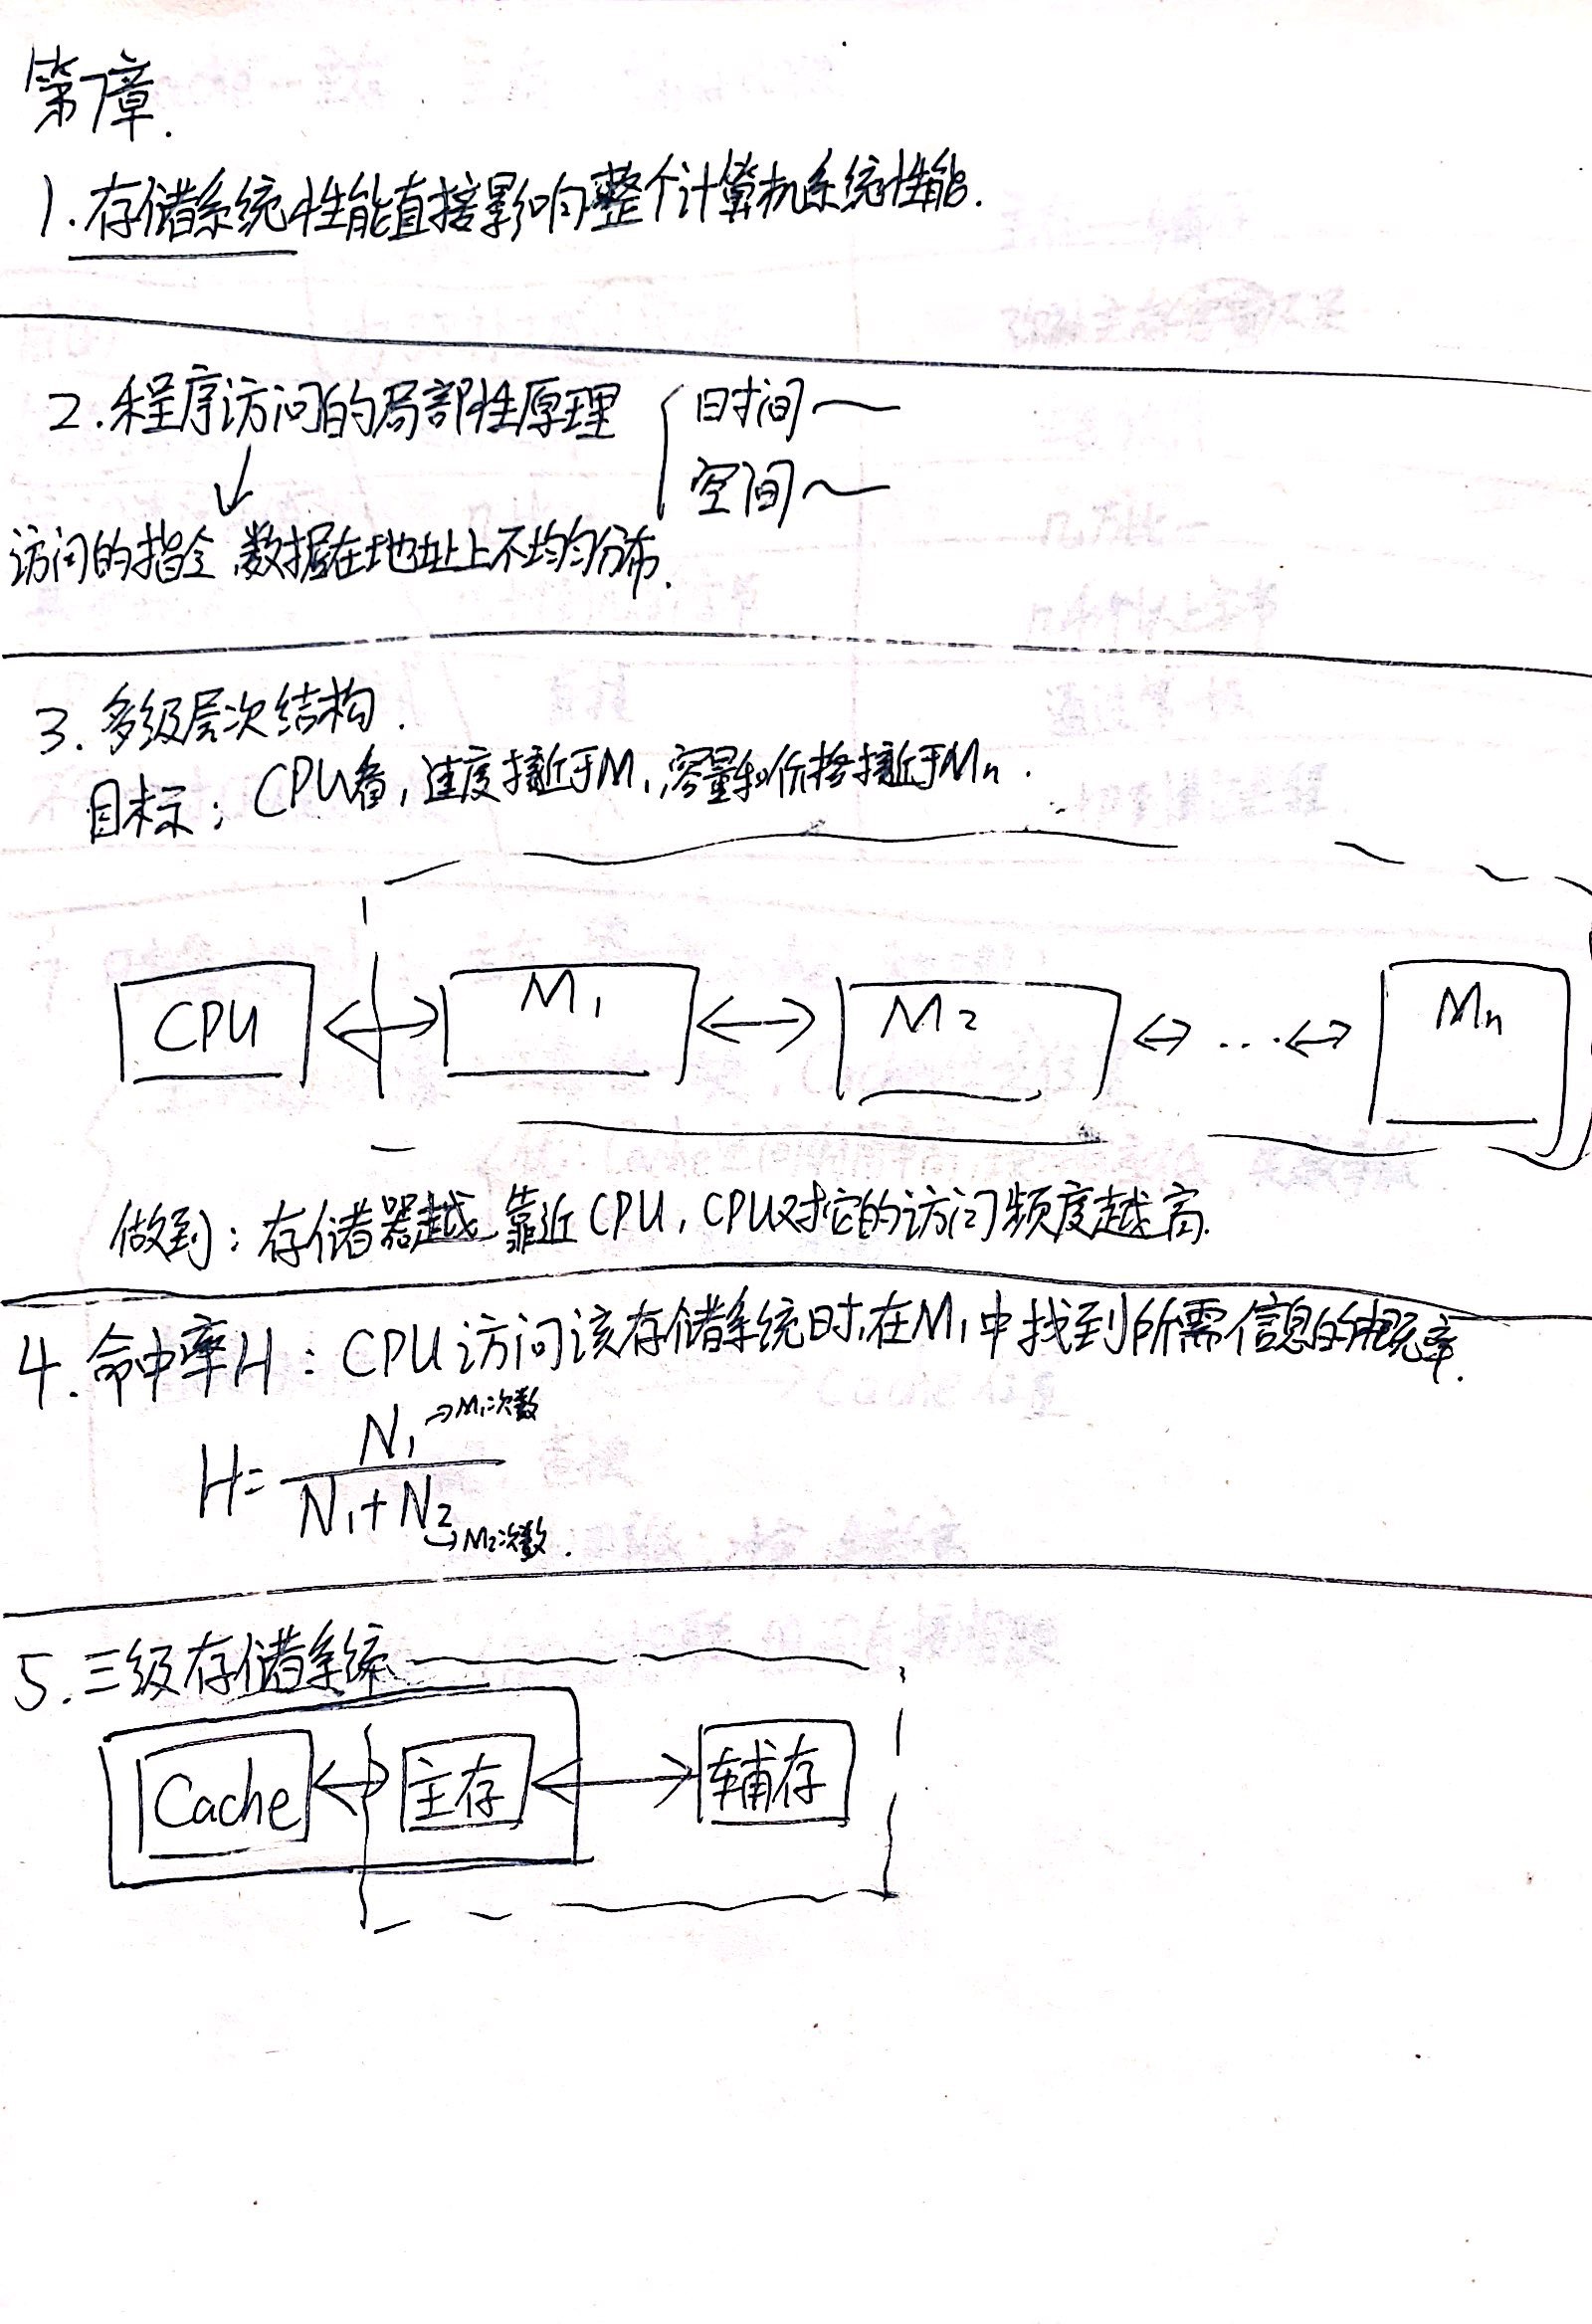 第7章.
1.存储系统性能直接影响整个计算机系统性能.
2.程序访问的局部性原理 { 时间~
空间~
↓
访问的指令、数据在地址上不均匀分布.
3.多级层次结构.
目标: CPU看,速度接近于M1,容量和价格接近于Mn.
CPU ↔ M1 ↔ M2 ↔ … ↔ Mn
做到:存储器越靠近CPU,CPU对它的访问频度越高.
4.命中率H:CPU访问该存储系统时,在M1中找到所需信息的概率.
H= N1 / (N1+N2)
→M1次数
→M2次数.
5.三级存储系统
Cache ↔ 主存 ↔ 辅存